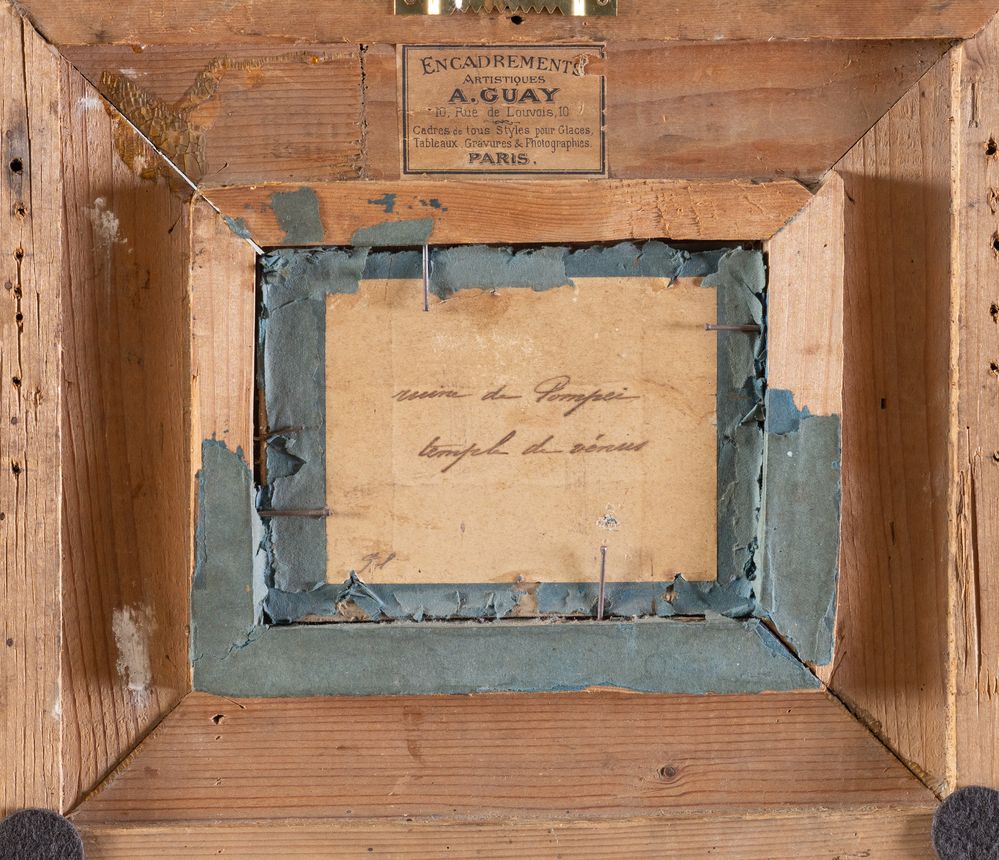 ENCADREMENTS
ARTISTIQUES
A. GUAY
10, Rue de Louvois, 10
Cadres de tous Styles pour Glaces,
Tableaux, Gravures & Photographies.
PARIS.
ruine de Pompei
temple de vénus